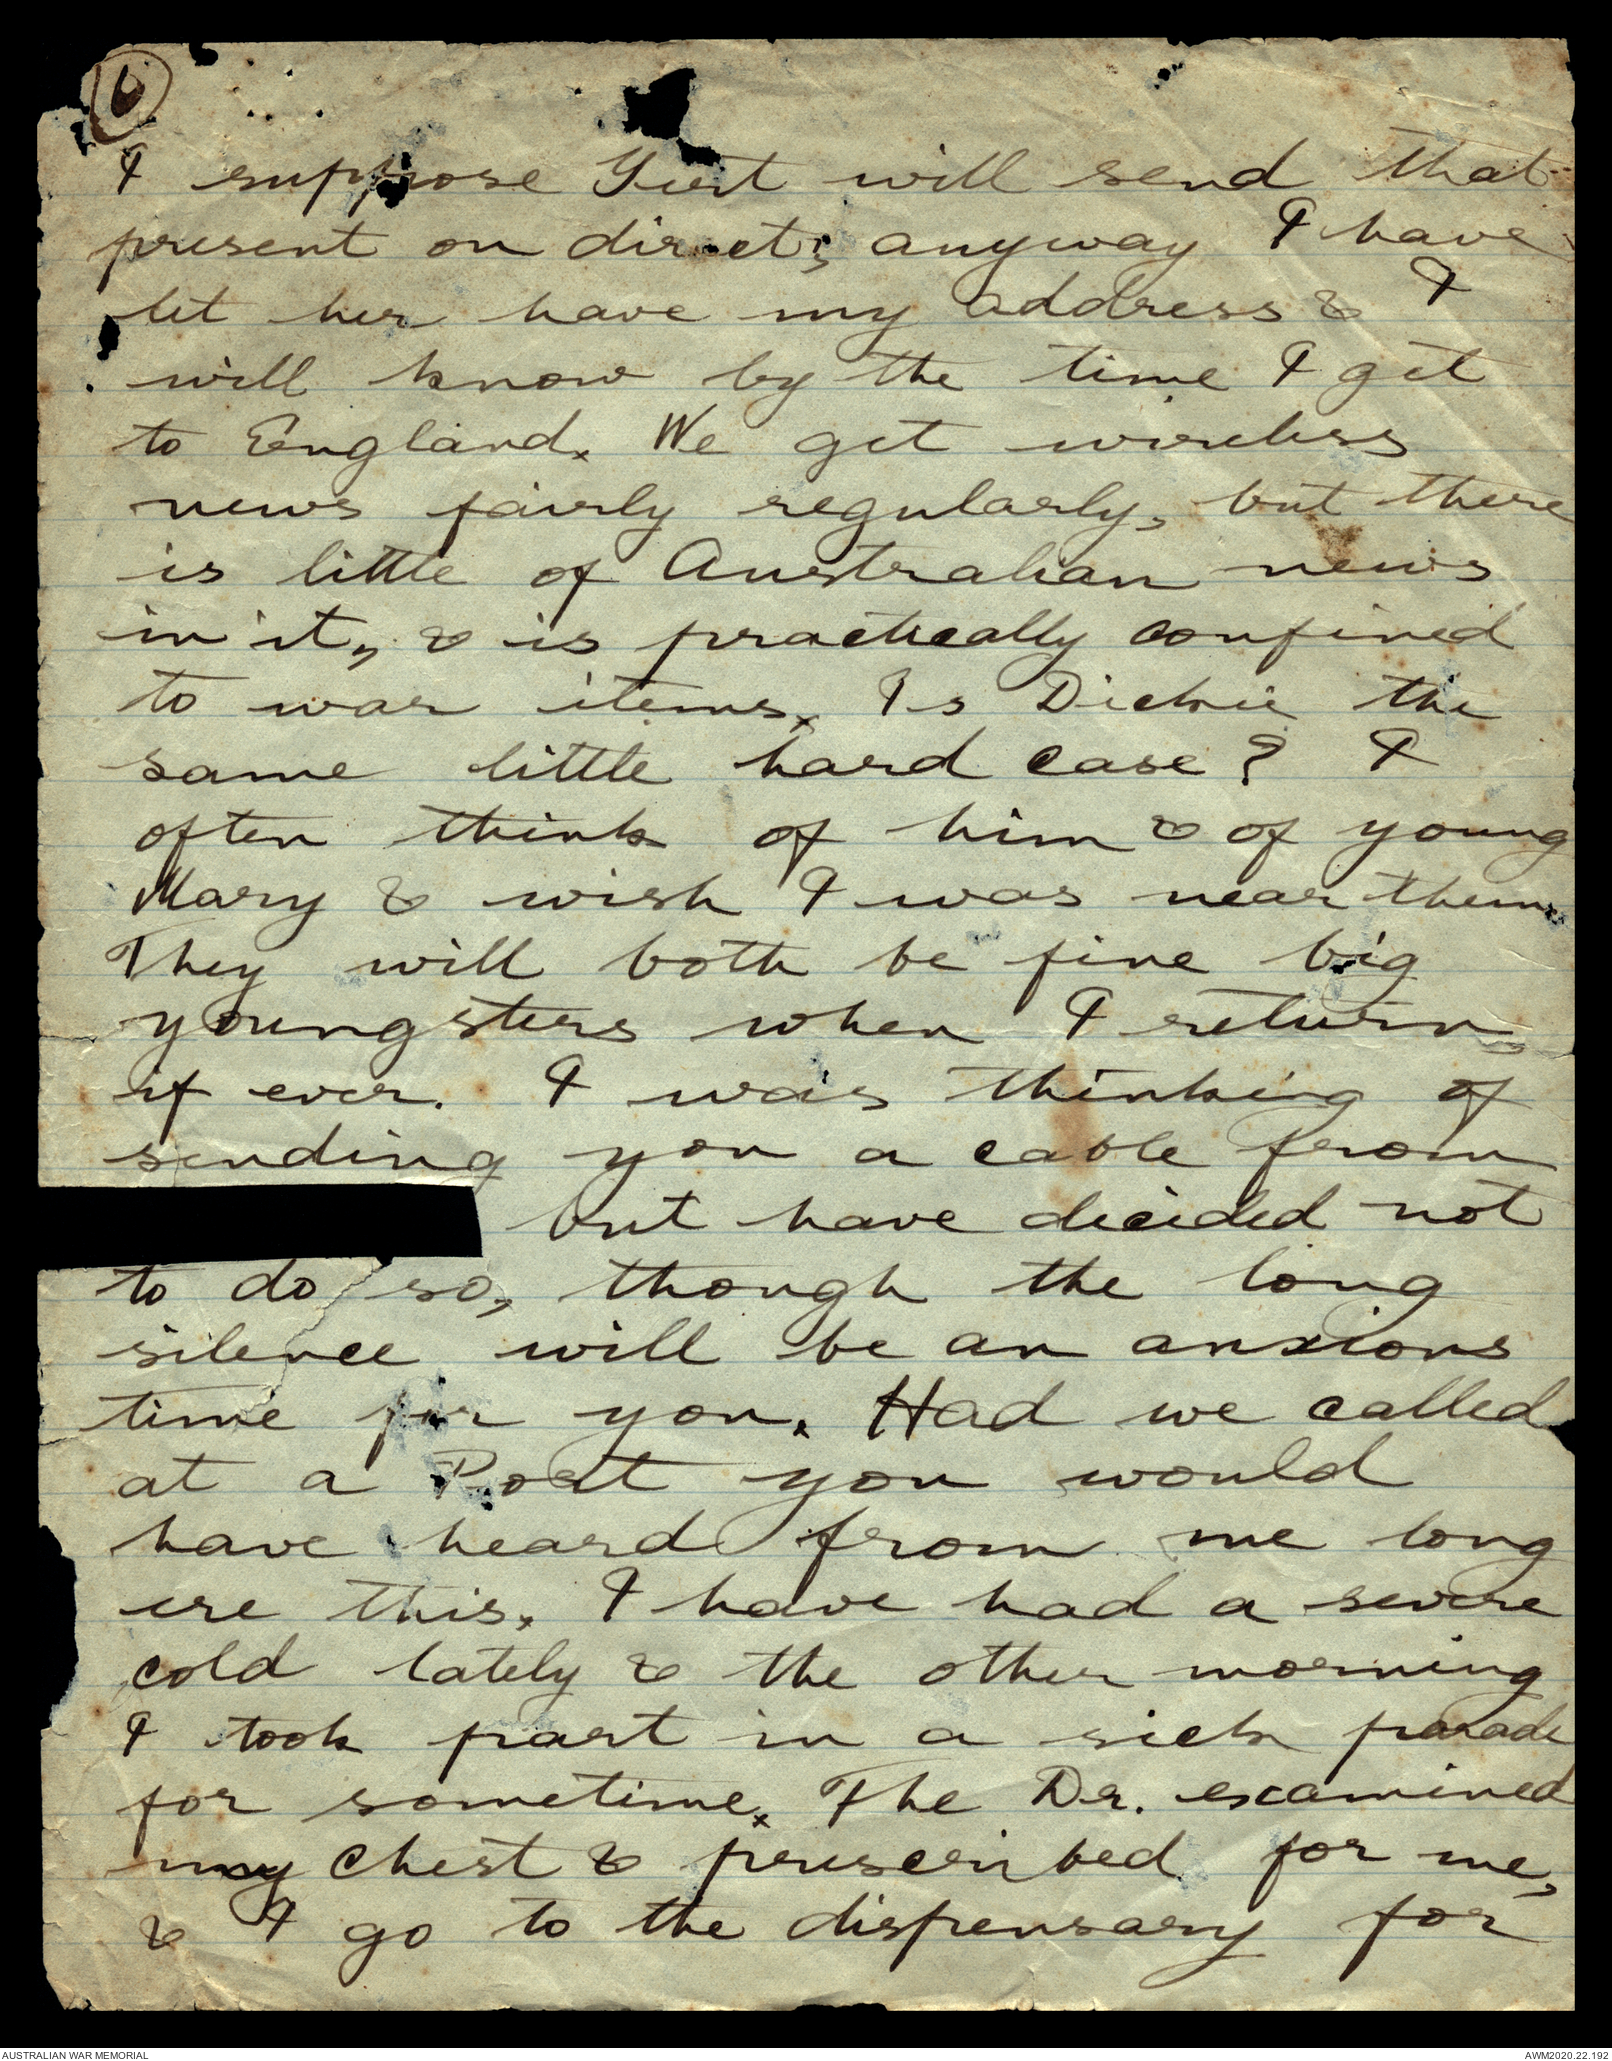 6
I suppose Gert will send that
present on direct; anyway I have
let her have my address & I
will know by the time I get
to England. We get wireless
news fairly regularly, but there
is little of Australian news
in it, & is practically confined
to war items. Is Dickie the
same little hard case? I
often think of him & of young
Mary & wish I was near them.
They will both be fine big
youngsters when I return,
if ever. I was thinking of
sending you a cable from
but have decided not
to do so, though the long
silence will be an anxious
time for you. Had we called
at a Port you would
have heard from me long
ere this. I have had a severe
cold lately & the other morning
I took part in a sick parade
for sometime. The Dr. examined
my chest & prescribed for me,
& I go to the dispensary for
AUSTRALIAN WAR MEMORIAL
AWM2020.22.192